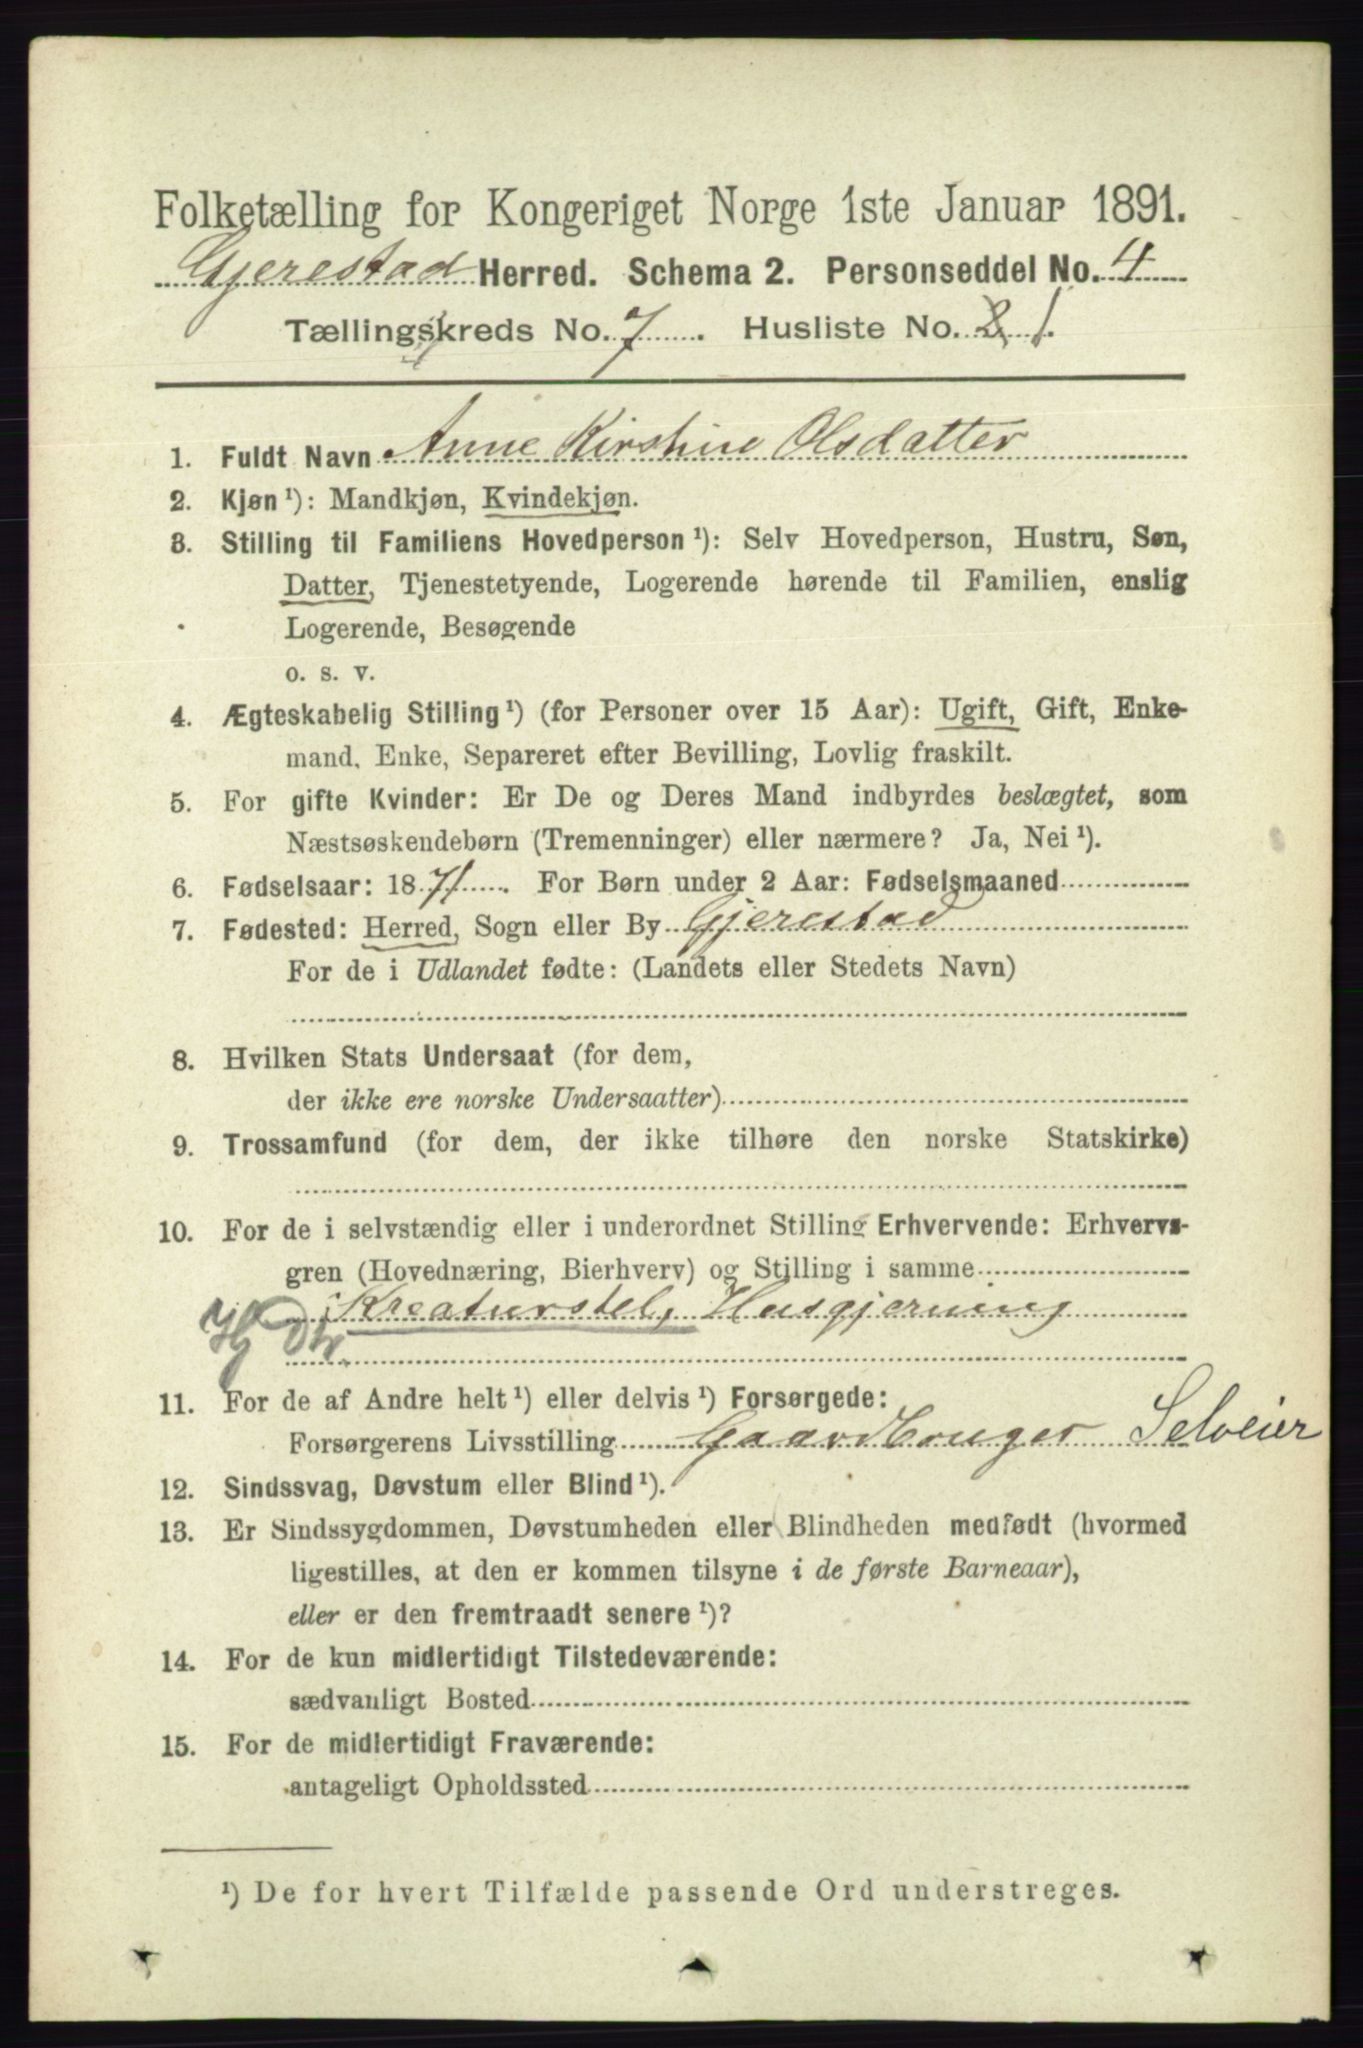 Folketælling for Kongeriget Norge 1ste Januar 1891.
Gjerestad Herred. Schema 2. Personseddel No. 4
Tællingskreds No. 7. Husliste No. 1.
1. Fuldt Navn Anne Kirstine Olsdatter
2. Kjøn ¹): Mandkjøn, Kvindekjøn.
3. Stilling til Familiens Hovedperson ¹): Selv Hovedperson, Hustru, Søn,
Datter, Tjenestetyende, Logerende hørende til Familien, enslig
Logerende, Besøgende
o. s. v.
4. Ægteskabelig Stilling ¹) (for Personer over 15 Aar): Ugift, Gift, Enke-
mand, Enke, Separeret efter Bevilling, Lovlig fraskilt.
5. For gifte Kvinder: Er De og Deres Mand indbyrdes beslægtet, som
Næstsøskendebørn (Tremenninger) eller nærmere? Ja, Nei ¹).
6. Fødselsaar: 1871. For Børn under 2 Aar: Fødselsmaaned
7. Fødested: Herred, Sogn eller By Gjerestad
For de i Udlandet fødte: (Landets eller Stedets Navn)
8. Hvilken Stats Undersaat (for dem,
der ikke ere norske Undersaatter)
9. Trossamfund (for dem, der ikke tilhøre den norske Statskirke)
10. For de i selvstændig eller i underordnet Stilling Erhvervende: Erhvervs-
gren (Hovednæring, Bierhverv) og Stilling i samme
Kreaturstel, Husgjerning
11. For de af Andre helt ¹) eller delvis ¹) Forsørgede:
Forsørgerens Livsstilling Gaardbruger Selveier
12. Sindssvag, Døvstum eller Blind ¹).
13. Er Sindssygdommen, Døvstumheden eller Blindheden medfødt (hvormed
ligestilles, at den er kommen tilsyne i de første Barneaar),
eller er den fremtraadt senere ¹)?
14. For de kun midlertidigt Tilstedeværende:
sædvanligt Bosted
15. For de midlertidigt Fraværende:
antageligt Opholdssted
¹) De for hvert Tilfælde passende Ord understreges.